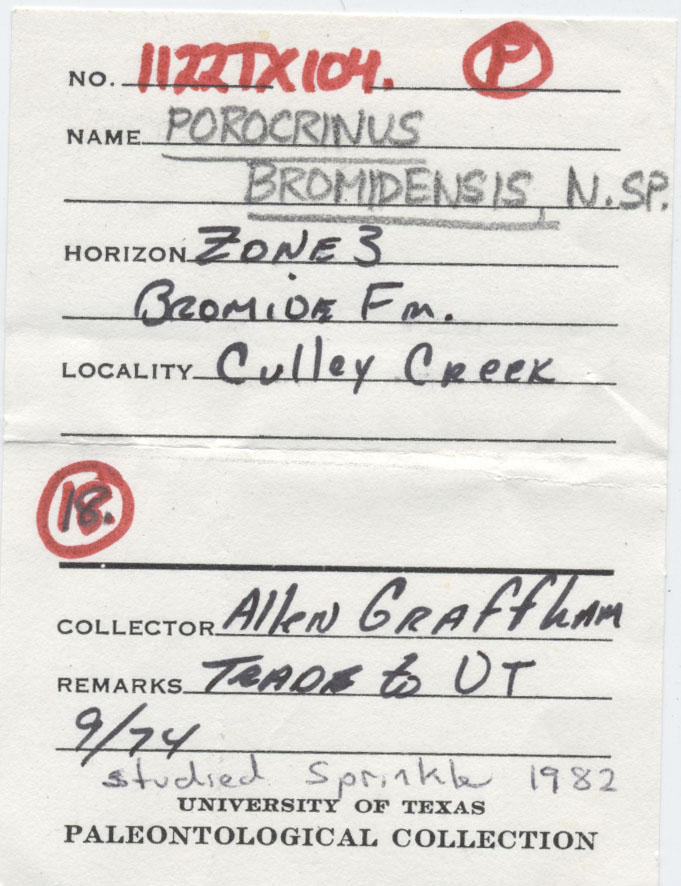 NO. 1122TX104. P
NAME POROCRINUS
BROMIDENSIS, N.SP.
HORIZON ZONE 3
BROMIDE Fm.
LOCALITY Culley CREEK
18.
COLLECTOR Allen GRAFFHAM
REMARKS TRADE to UT
9/74
studied Sprinkle 1982
UNIVERSITY OF TEXAS
PALEONTOLOGICAL COLLECTION